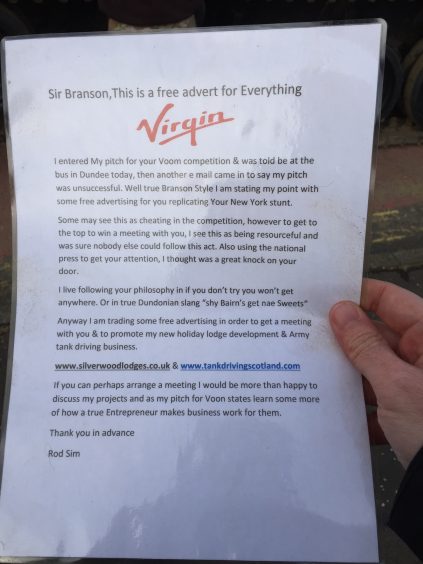 Sir Branson,This is a free advert for Everything
Virgin
I entered My pitch for your Voom competition & was told be at the
bus in Dundee today, then another e mail came in to say my pitch
was unsuccessful. Well true Branson Style I am stating my point with
some free advertising for you replicating Your New York stunt.
Some may see this as cheating in the competition, however to get to
the top to win a meeting with you, I see this as being resourceful and
was sure nobody else could follow this act. Also using the national
press to get your attention, I thought was a great knock on your
door.
I live following your philosophy in if you don't try you won't get
anywhere. Or in true Dundonian slang "shy Bairn's get nae Sweets"
Anyway I am trading some free advertising in order to get a meeting
with you & to promote my new holiday lodge development & Army
tank driving business.
www.silverwoodlodges.co.uk & www.tankdrivingscotland.com
If you can perhaps arrange a meeting I would be more than happy to
discuss my projects and as my pitch for Voon states learn some more
of how a true Entrepreneur makes business work for them.
Thank you in advance
Rod Sim